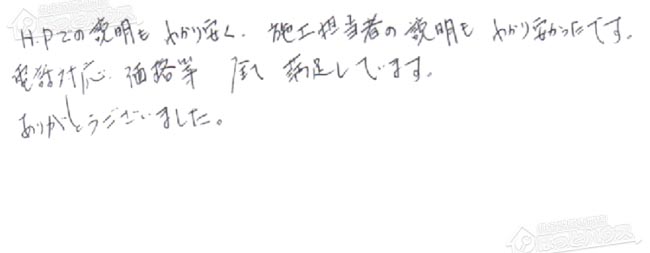 H.Pでの説明も わかり安く、施工担当者の説明も わかり安かったです。
電話対応、価格等 全て 満足しています。
ありがとうございました。